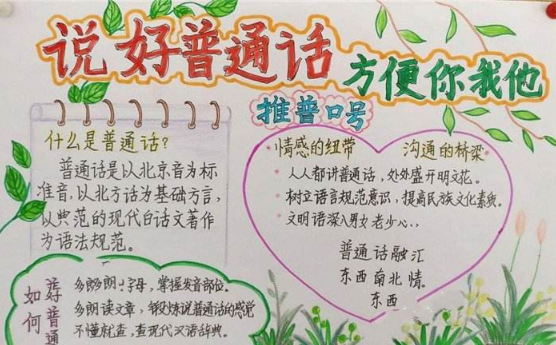 说好普通话
方便你我他
推普口号
什么是普通话?
普通话是以北京音为标
准音,以北方话为基础方言,
以典范的现代白话文著作
为语法规范。
情感的纽带 沟通的桥梁
人人都讲普通话,处处盛开明文花。
树立语言规范意识,提高民族文化素质。
文明语深入男女老少心
普通话融汇
东西南北情
东西
如何
好普通
多朗字母,掌握发音部位。
多朗读文章,锻炼说普通话的感觉
不懂就查,查现代汉语辞典。